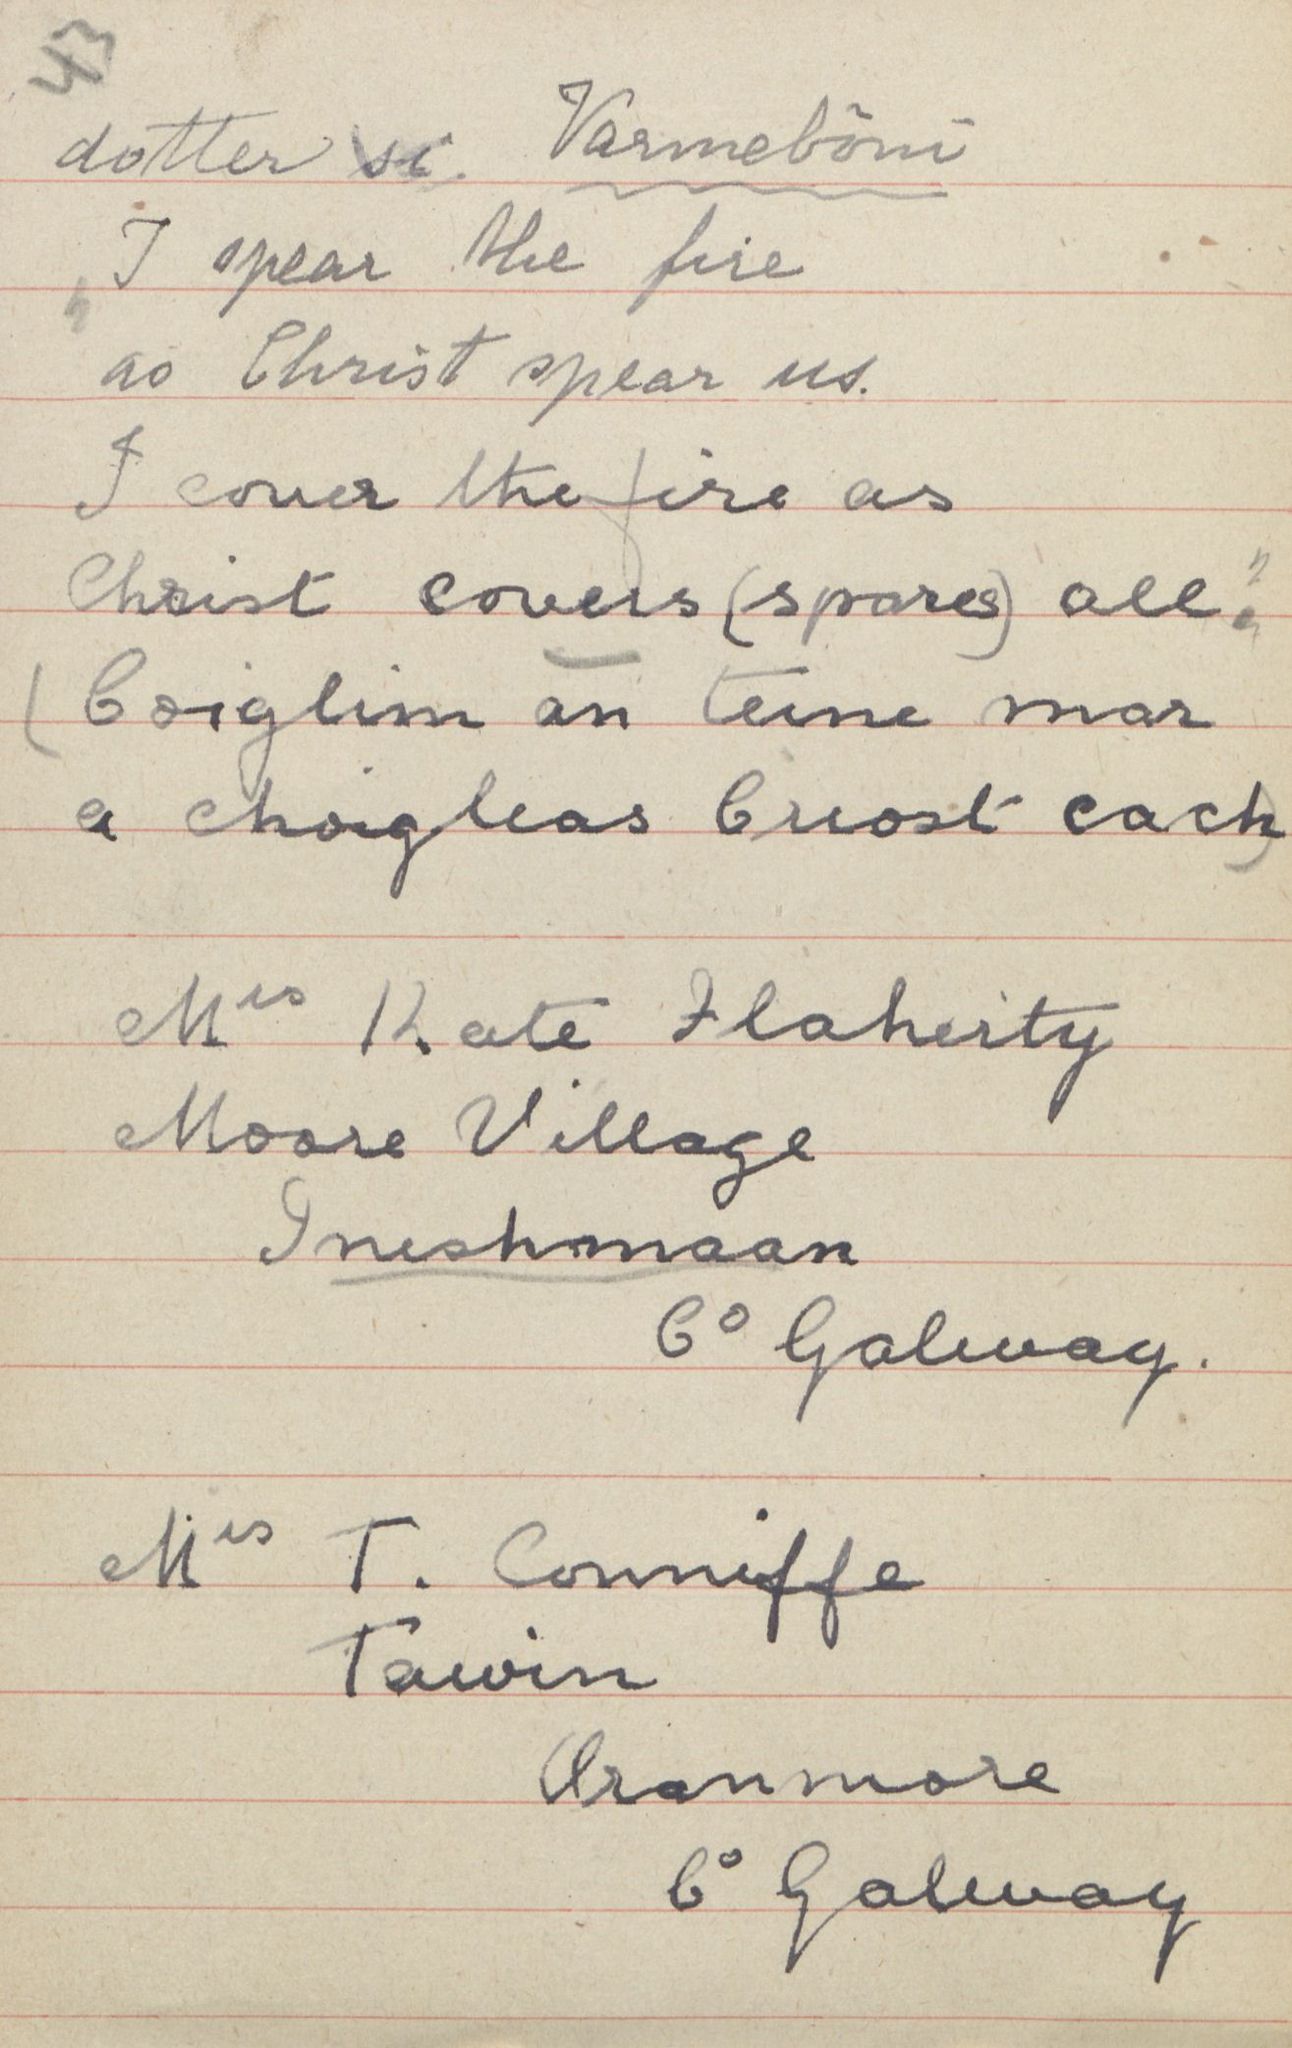 43
dotter si. Varmeböni
„I spear the fire
as Christ spear us.
I cover the fire as
Christ covers (spares) all."
(Coiglim an teine mar
a choigleas Criost cach)
Mrs Kate Flaherty
Moore Village
Inishmaan
Co Galway.
Mrs T. Conniffe
Tawin
Oranmore
Co Galway